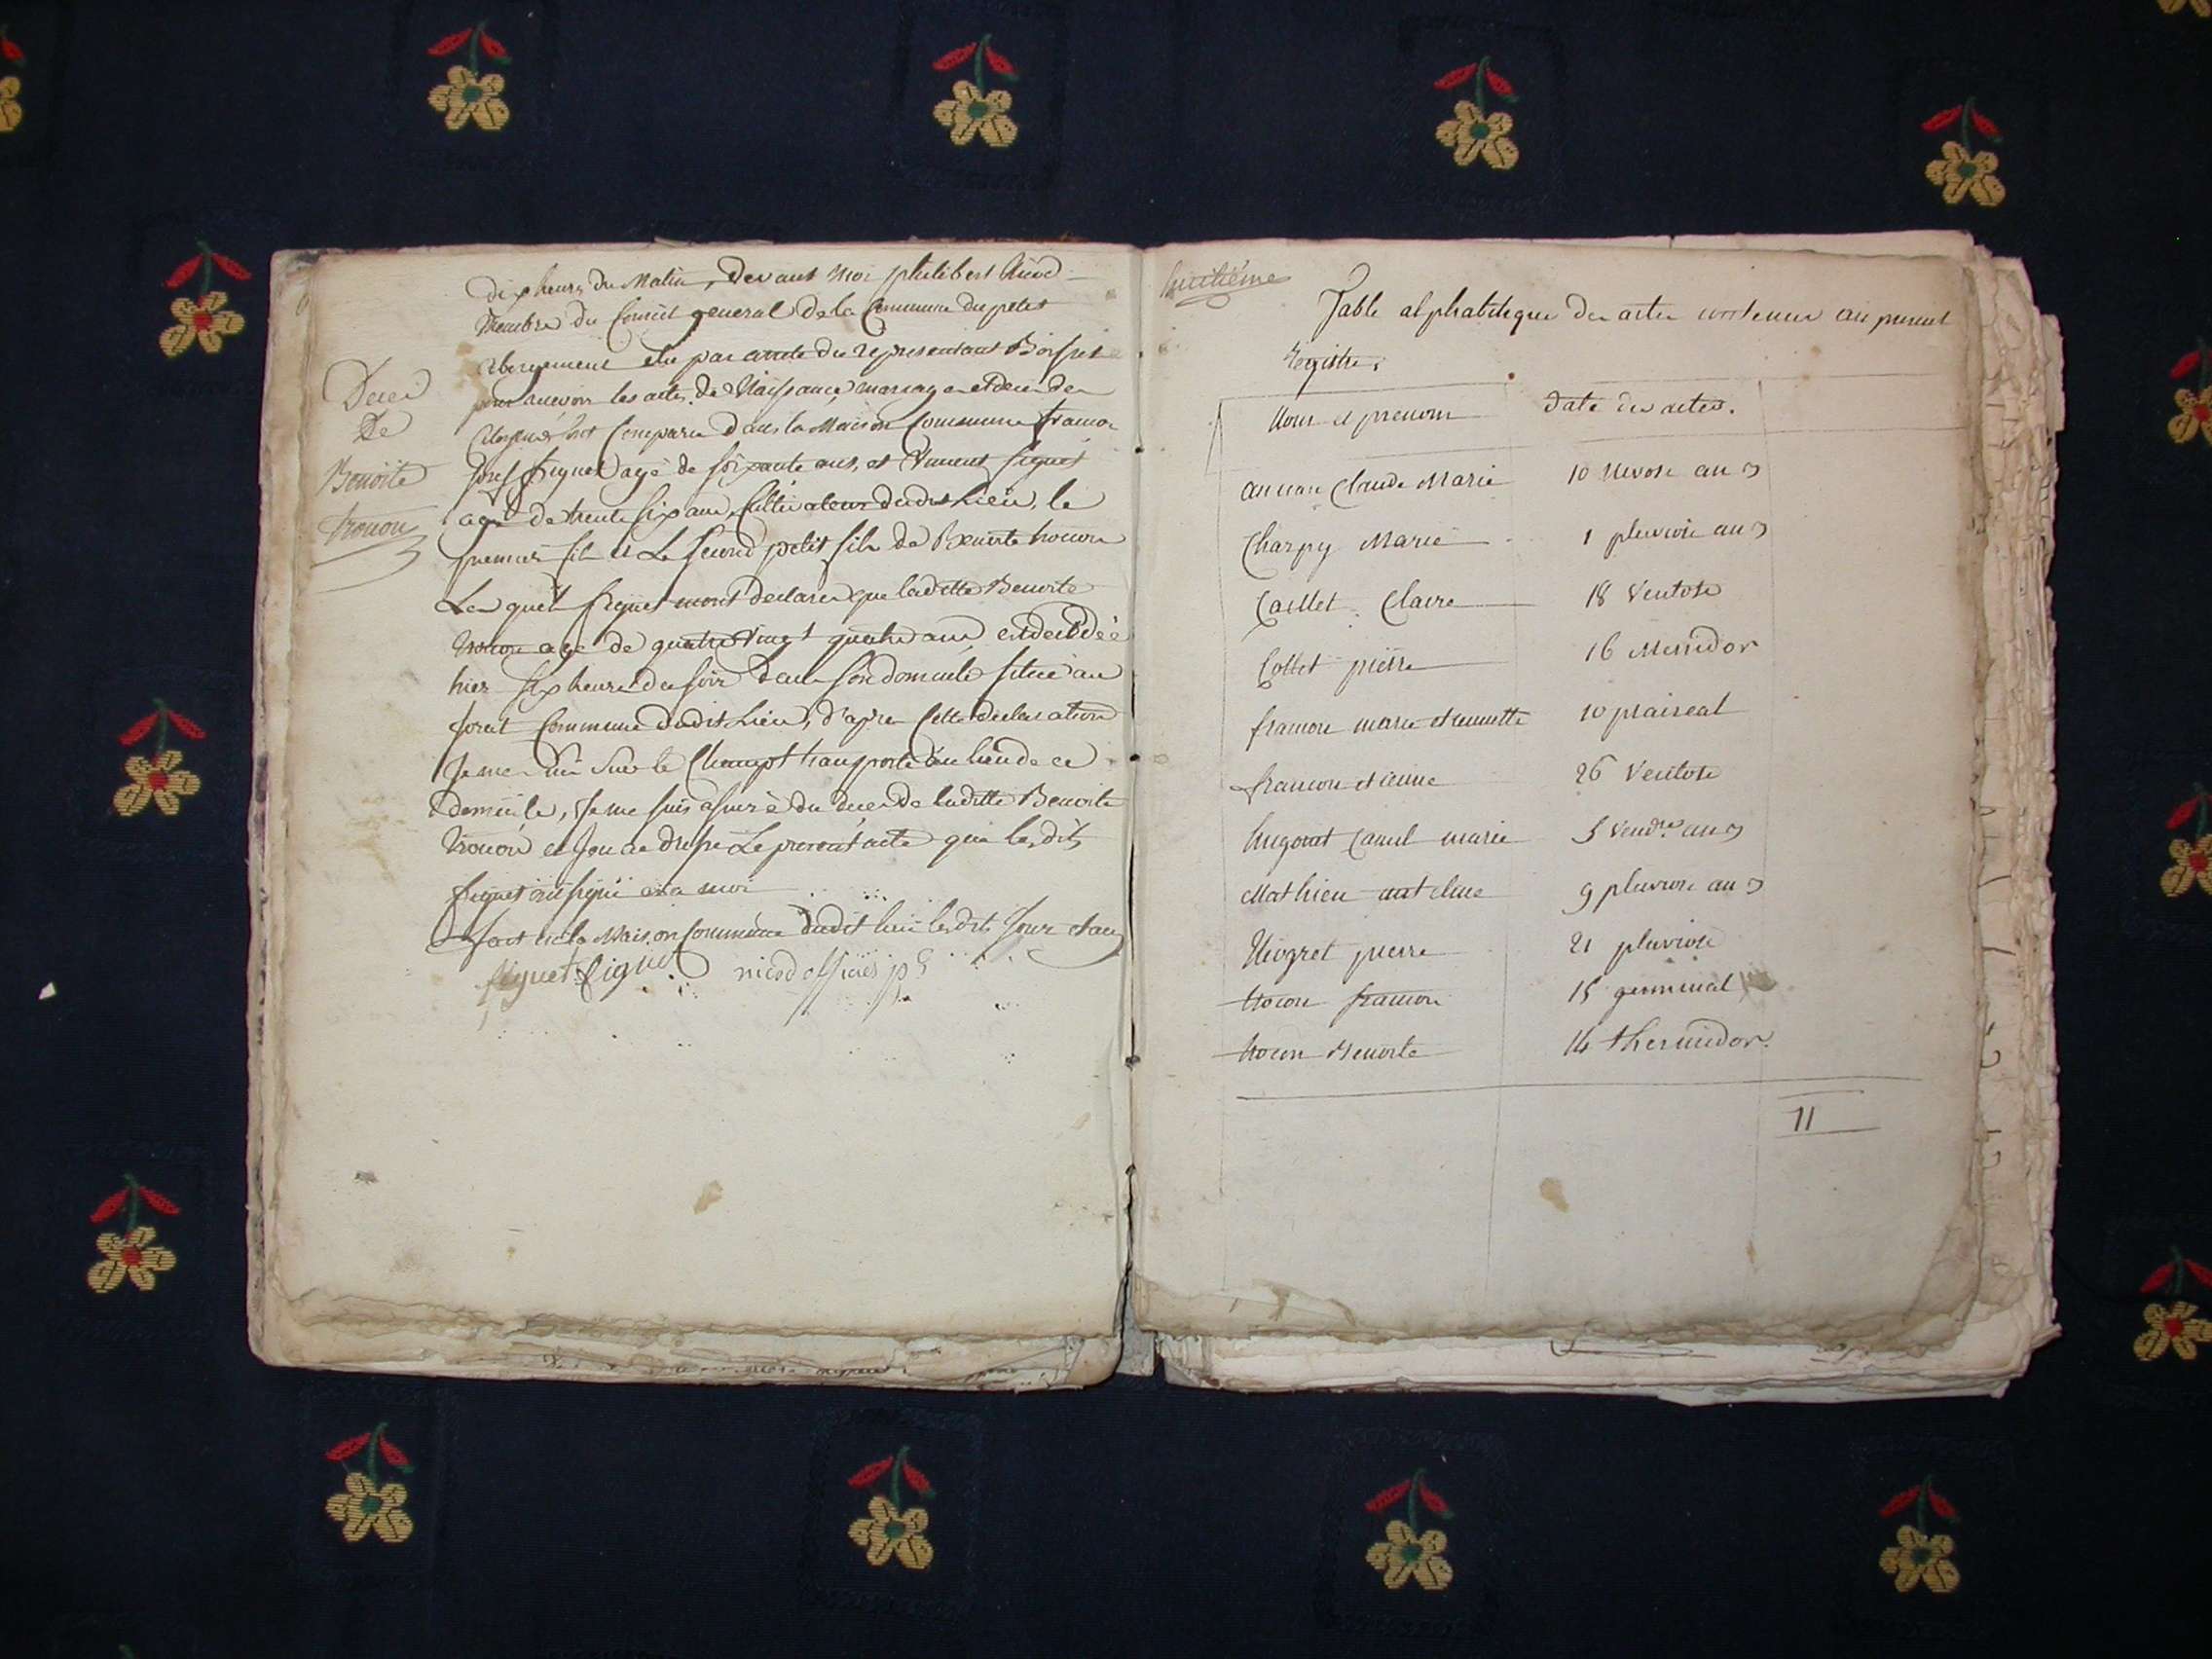 dix heures du Matin, devant moi philibert Nicod
Membre du Conseil general de la Commune du petit
Abergement elu par arreté du representant Boisset
pour recevoir les actes de Naissance mariage et deces des
Citoyens sont Comparu dans la Maison Commune francois
Decés
De
Benoite
trocon
josef figuet agé de soixante ans, et Vincent figuet
agé de trente six ans, Cultivateurs dudit Lieu, le
premier fils et Le second petit fils de Benoite trocon
Les quels figuet mont declarer que laditte Benoite
trocon agé de quatre Vingt quatre ans est decédéé
hier six heures du soir dans son domicile situé au
Commune dudit Lieu, d'après Cette declaration
Je me suis sur le Champt transporté au lieu de ce
domicile, Je me suis assuré du deces de laditte Benoite
trocon et J'en ai dressé Le present acte que lesdits
figuet ont signé avec moi
fait en la Maison Commune dudit lieu lesdits Jour et an
figuet figuet nicod officier p
huitiéme
Table alphabetique des actes contenus au present
Registre.
Noms et prenoms Date des actes.
Claude Marie 10 Nivose an 3
Charpy Marie 1 pluviose an 3
Caillet Claire 18 Ventose
Collet pierre 16 Messidor
francon marie etiennette 10 prairéal
francon etienne 26 Ventose
hugonet Camil marie 5 Vendre an 3
Mathieu antelme 9 pluviose an 3
Niogret pierre 21 pluviose
trocon francois 15 germinal
trocon Benoite 14 thermidor.
11